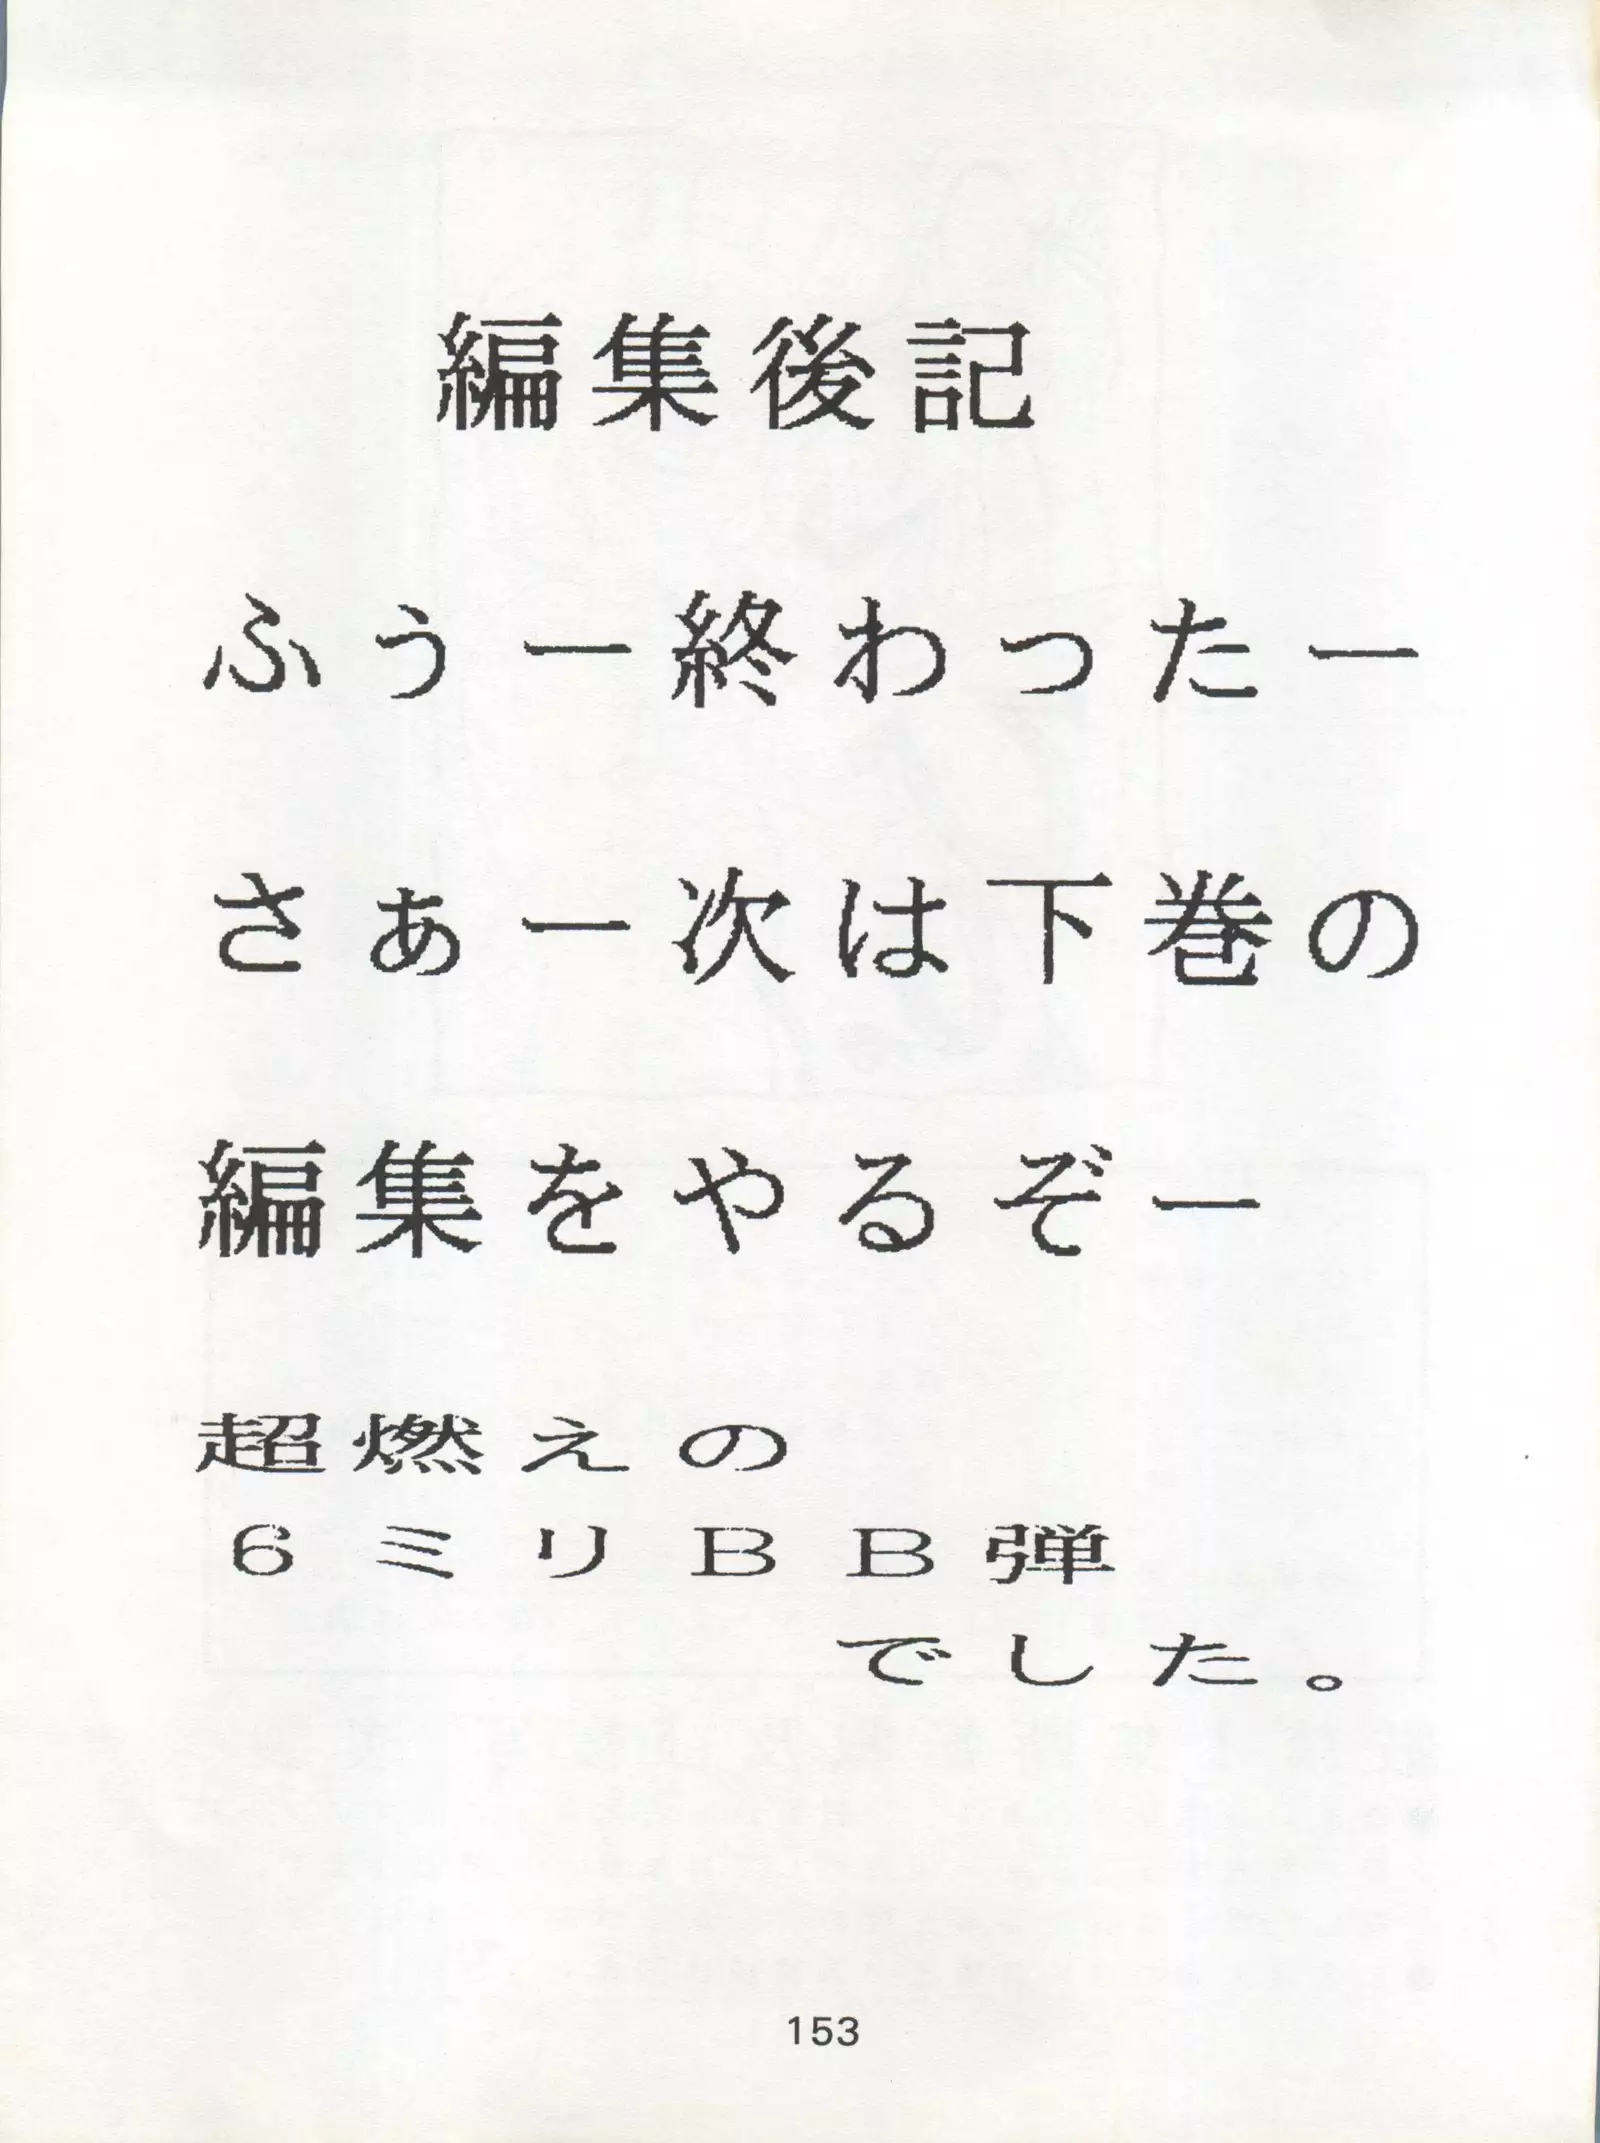 編集後記
ふぅー終わったー
さぁー次は下巻の
編集をやるぞー
超燃えの
6ミリBB弾
でした。
153